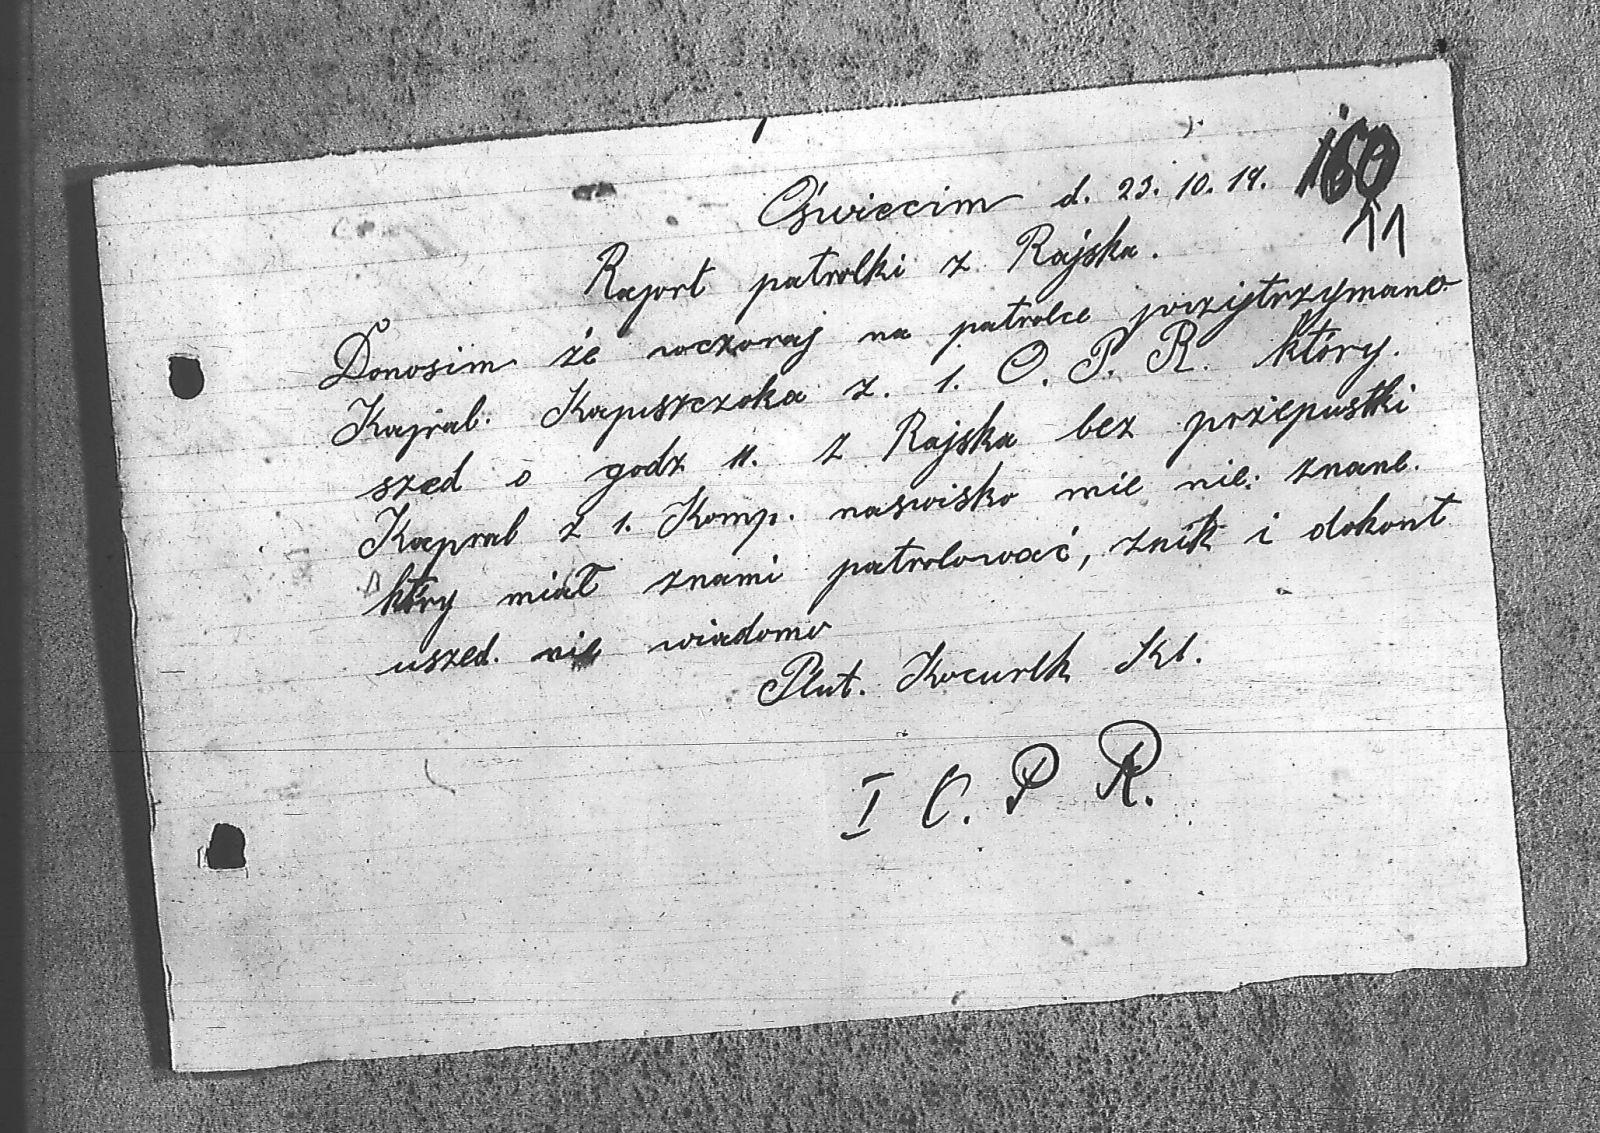 Oświecim d. 23. 10. 19.
11
Raport patrolki z Rajska.
Donosim że woczoraj na patrolce pozijtrzymano
Kapral. Kapuszczoka z. 1. O. P. R. który.
szed o godz 11. z Rajska bez przepustki
Kapral z 1. Komp. naswisko mie nie: znane.
który miał znami patrolować, znik i dokont
uszed. nie wiadomo
Plut. Kocurek Kl.
I O. P R.